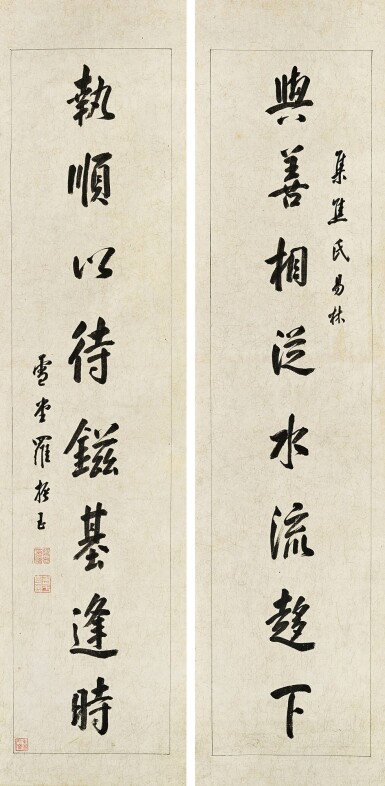 集焦氏易林
與善相從水流趍下
執順以待鎡基逢時
雪堂羅振玉